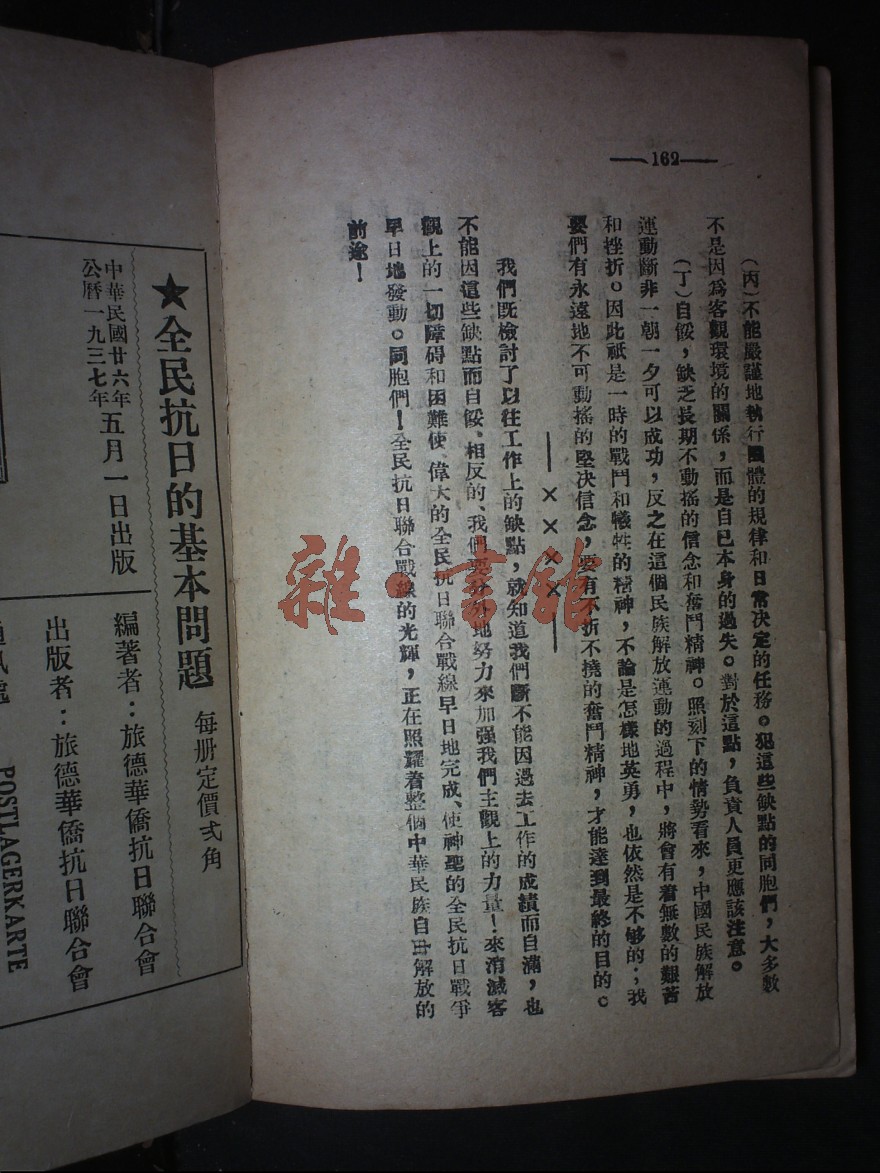 —162—
(丙)不能嚴謹地執行團體的規律和日常決定的任務。犯這些缺點的同胞們，大多數
不是因爲客觀環境的關係，而是自己本身的過失。對於這點，負責人員更應該注意。
(丁)自餒，缺乏長期不動搖的信念和奮鬥精神。照刻下的情勢看來，中國民族解放
運動斷非一朝一夕可以成功，反之在這個民族解放運動的過程中，將會有着無數的艱苦
和挫折。因此祇是一時的戰鬥和犧牲的精神，不論是怎樣地英勇，也依然是不够的；我
要們有永遠地不可動搖的堅決信念，要有不折不撓的奮鬥精神，才能達到最終的目的。
——××××——
我們既檢討了以往工作上的缺點，就知道我們斷不能因過去工作的成績而自滿，也
不能因這些缺點而自餒、相反的、我們要分外地努力來加强我們主觀上的力量！來消滅客
觀上的一切障碍和困難使、偉大的全民抗日聯合戰線早日地完成、使神聖的全民抗日戰爭
早日地發動。同胞們！全民抗日聯合戰線的光輝，正在照耀着整個中華民族自由解放的
前途！
雜·書館
★全民抗日的基本問題 每册定價弍角
中華民國廿六年
公曆一九三七年
五月一日出版
編著者：旅德華僑抗日聯合會
出版者：旅德華僑抗日聯合會
POSTLAGERKARTE